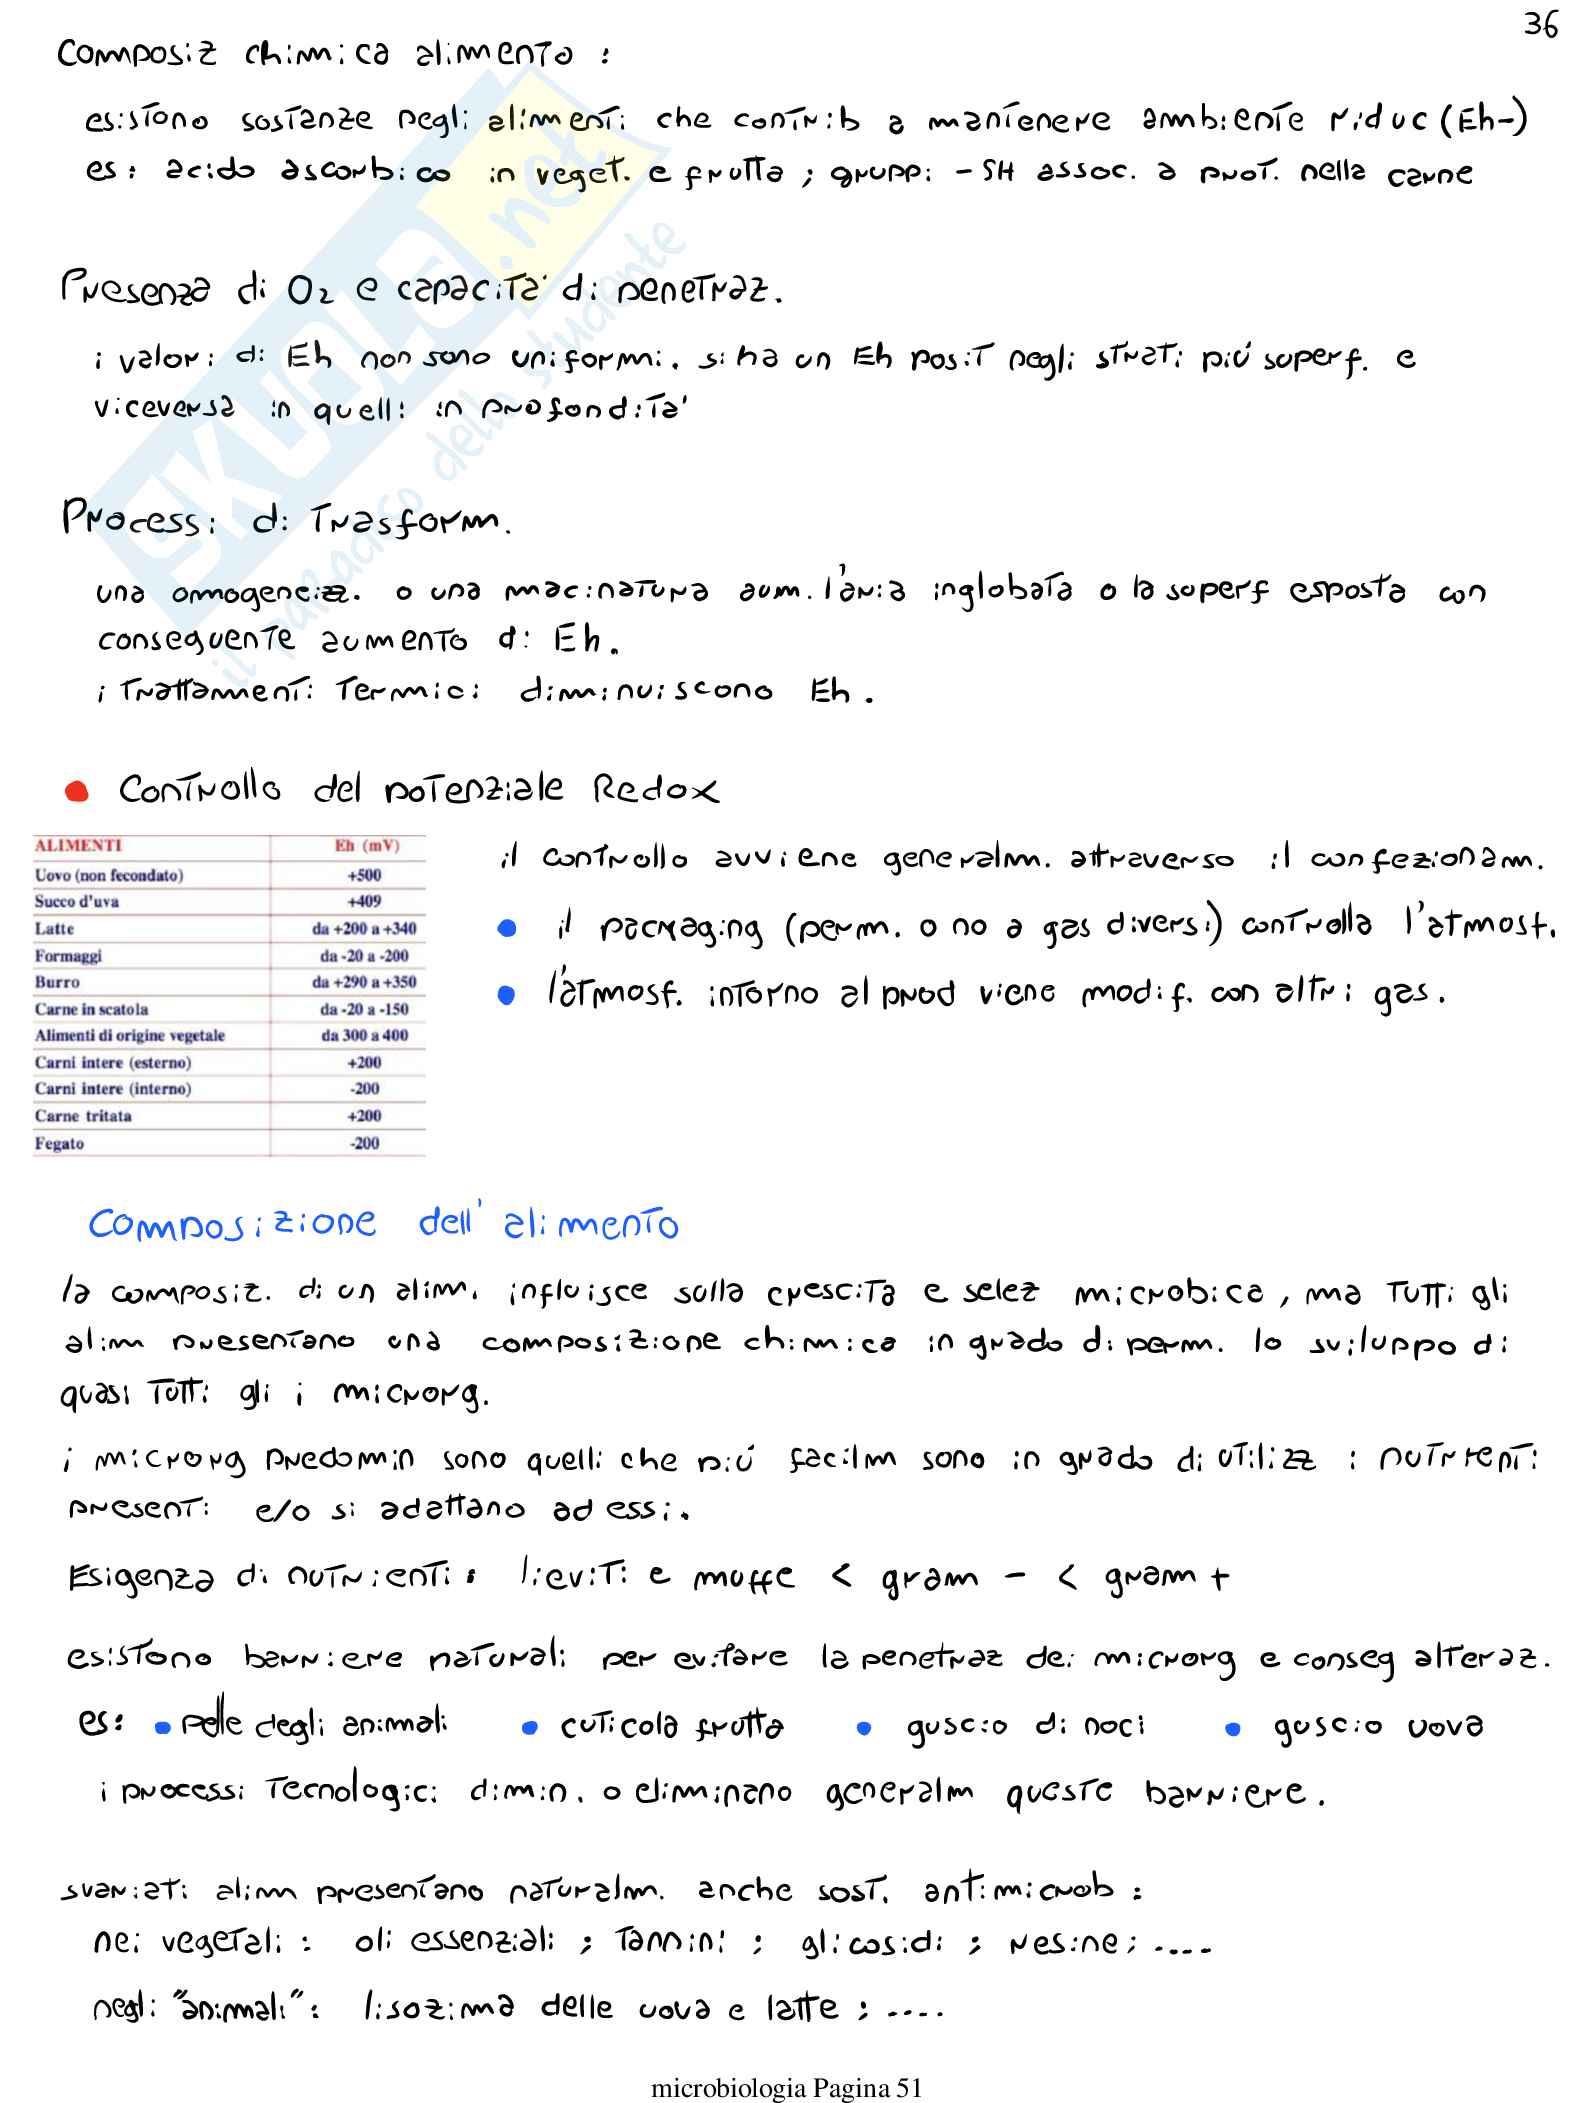 36
Composiz chimica alimento :
esistono sostanze negli alimenti che contrib a mantenere ambiente riduc (Eh-)
es : acido ascorbico in veget. e frutta ; gruppi - SH assoc. a prot. nella carne
Presenza di O₂ e capacità di penetraz.
i valori di Eh non sono uniformi. si ha un Eh posit negli strati più superf. e
viceversa in quelli in profondità
Processi di trasform.
una omogeneizz. o una macinatura aum. l'aria inglobata o la superf esposta con
conseguente aumento di Eh.
i trattamenti termici diminuiscono Eh.
• Controllo del potenziale Redox
ALIMENTI Eh (mV)
Uovo (non fecondato) +500
Succo d'uva +409
Latte da +200 a +340
Formaggi da -20 a -200
Burro da +290 a +350
Carne in scatola da -20 a -150
Alimenti di origine vegetale da 300 a 400
Carni intere (esterno) +200
Carni intere (interno) -200
Carne tritata +200
Fegato -200
il controllo avviene generalm. attraverso il confezionam.
• il packaging (perm. o no a gas diversi) controlla l'atmosf.
• l'atmosf. intorno al prod viene modif. con altri gas.
Composizione dell'alimento
la composiz. di un alim. influisce sulla crescita e selez microbica, ma tutti gli
alim presentano una composizione chimica in grado di perm. lo sviluppo di
quasi tutti gli i microrg.
i microrg predomin sono quelli che più facilm sono in grado di utilizz i nutrienti
presenti e/o si adattano ad essi.
Esigenza di nutrienti : lieviti e muffe < gram - < gram +
esistono barriere naturali per evitare la penetraz dei microrg e conseg alteraz.
es: • pelle degli animali • cuticola frutta • guscio di noci • guscio uova
i processi tecnologici dimin. o eliminano generalm queste barriere.
svariati alim presentano naturalm. anche sost. antimicrob :
nei vegetali : oli essenziali ; tannini ; glicosidi ; resine ; ....
negli "animali" : lisozima delle uova e latte ; ....
microbiologia Pagina 51
SKUOLA.net
il paradiso dello studente